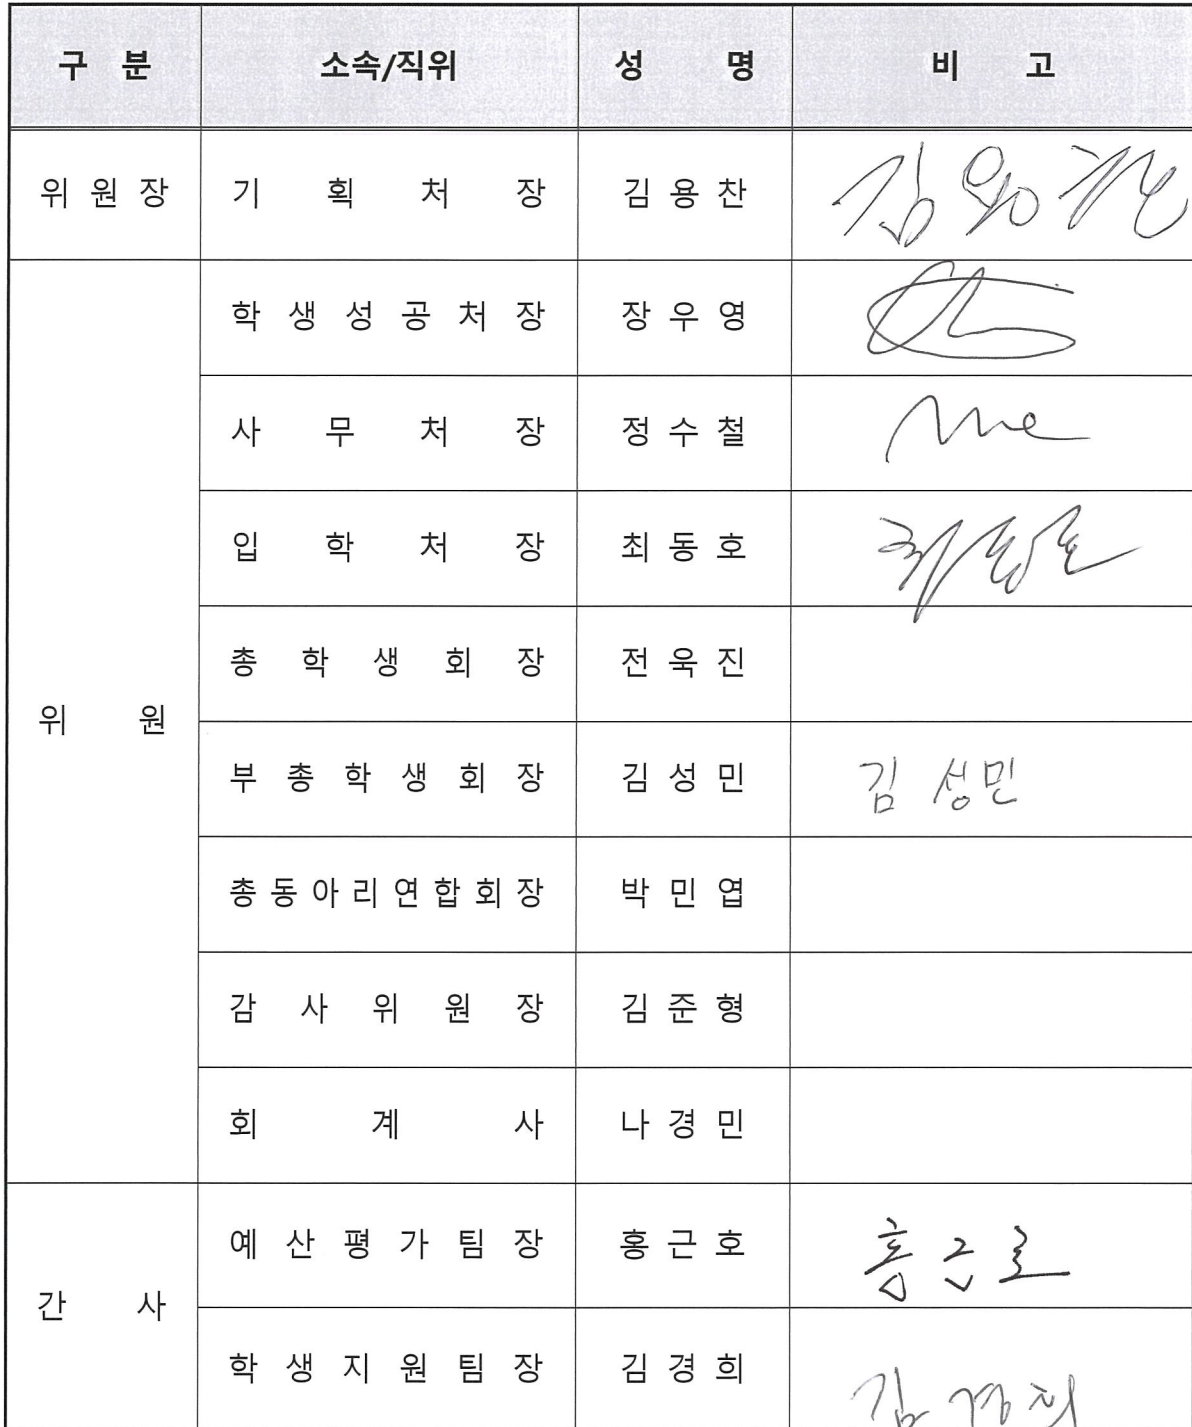 구 분 소속/직위 성 명 비 고
위 원 장 기 획 처 장 김 용 찬 김용찬
학 생 성 공 처 장 장 우 영
사 무 처 장 정 수 철
입 학 처 장 최 동 호 최동호
총 학 생 회 장 전 욱 진
위 원
부 총 학 생 회 장 김 성 민 김 성민
총 동 아 리 연 합 회 장 박 민 엽
감 사 위 원 장 김 준 형
회 계 사 나 경 민
예 산 평 가 팀 장 홍 근 호 홍근호
간 사
학 생 지 원 팀 장 김 경 희 김경희